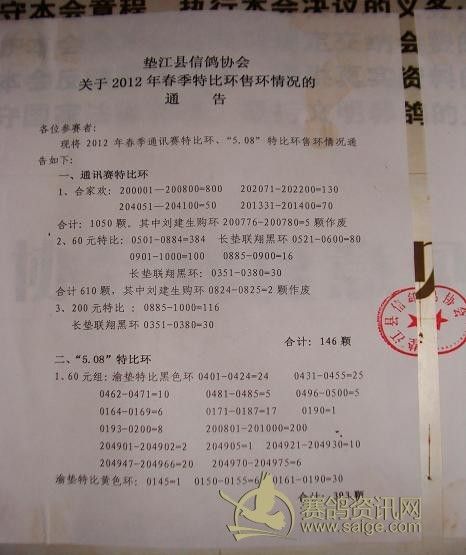 守本会章程，执行本会决议的义务
垫江县信鸽协会
关于 2012 年春季特比环售环情况的
通 告
各位参赛者：
现将 2012 年春季通讯赛特比环、“5.08”特比环售环情况通
告如下：
一、通讯赛特比环
1、合家欢：200001—200800=800 202071-202200=130
204051—204100=50 201331-201400=70
合计：1050 颗，其中刘建生购环 200776-200780=5 颗作废
2、60 元特比：0501-0884=384 长垫联翔黑环 0521-0600=80
0901-1000=100 0885-0900=16
长垫联翔黑环：0351-0380=30
合计 610 颗，其中刘建生购环 0824-0825=2 颗作废
3、200 元特比：0885-1000=116
长垫联翔黑环 0351-0380=30
合计：146 颗
二、“5.08”特比环
1、60 元组：渝垫特比黑色环 0401-0424=24 0431-0455=25
0462-0471=10 0481-0485=5 0496-0500=5
0164-0169=6 0171-0187=17 0190=1
0193-0200=8 200801-201000=200
204901-204902=2 204905=1 204921-204930=10
204947-204966=20 204970-204975=6
渝垫特比黄色环：0145=1 0150-0155=6 0161-0190=30
合计：393 颗
垫江县信鸽协会
赛鸽资讯网
www.saige.com